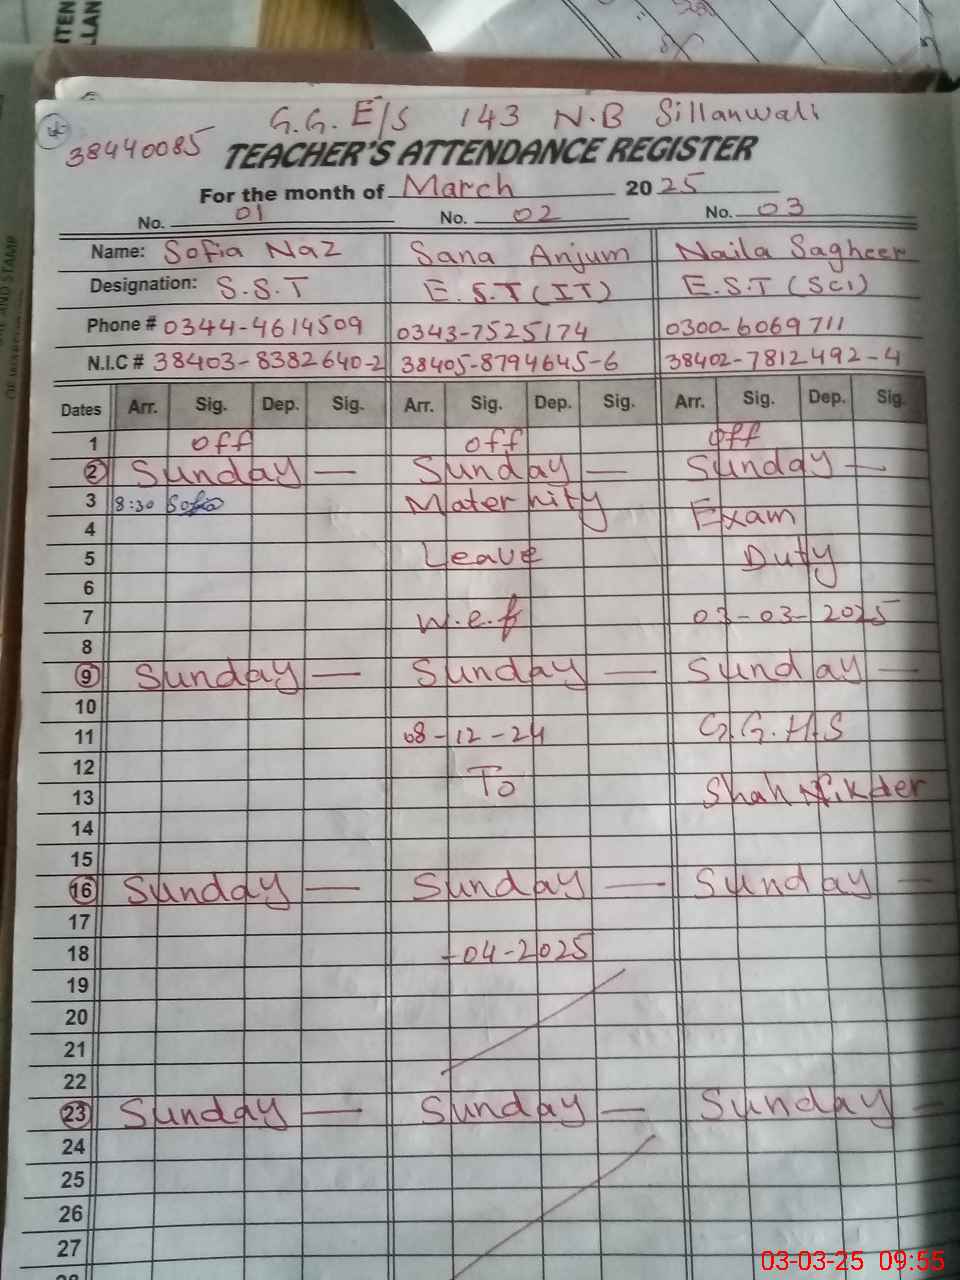 G.G. E/S 143 N.B Sillanwali
38440085 TEACHER'S ATTENDANCE REGISTER
For the month of March 2025
No. 01 No. 02 No. 03
Name: Sofia Naz Sana Anjum Naila Sagheer
Designation: S.S.T E.S.T (IT) E.S.T (Sci)
Phone # 0344-4614509 0343-7525174 0300-6069711
N.I.C # 38403-8382640-2 38405-8794645-6 38402-7812492-4
Dates Arr. Sig. Dep. Sig. Arr. Sig. Dep. Sig. Arr. Sig. Dep. Sig.
1 off off off
2 Sunday — Sunday — Sunday —
3 8:30 Sofia Maternity Exam
4
5 Leave Duty
6
7 w.e.f 03-03-2025
8
9 Sunday — Sunday — Sunday —
10
11 08-12-24 G.G.H.S
12 To
13 Shah Nikder
14
15
16 Sunday — Sunday — Sunday —
17
18 -04-2025
19
20
21
22
23 Sunday — Sunday — Sunday —
24
25
26
27
28
03-03-25 09:55